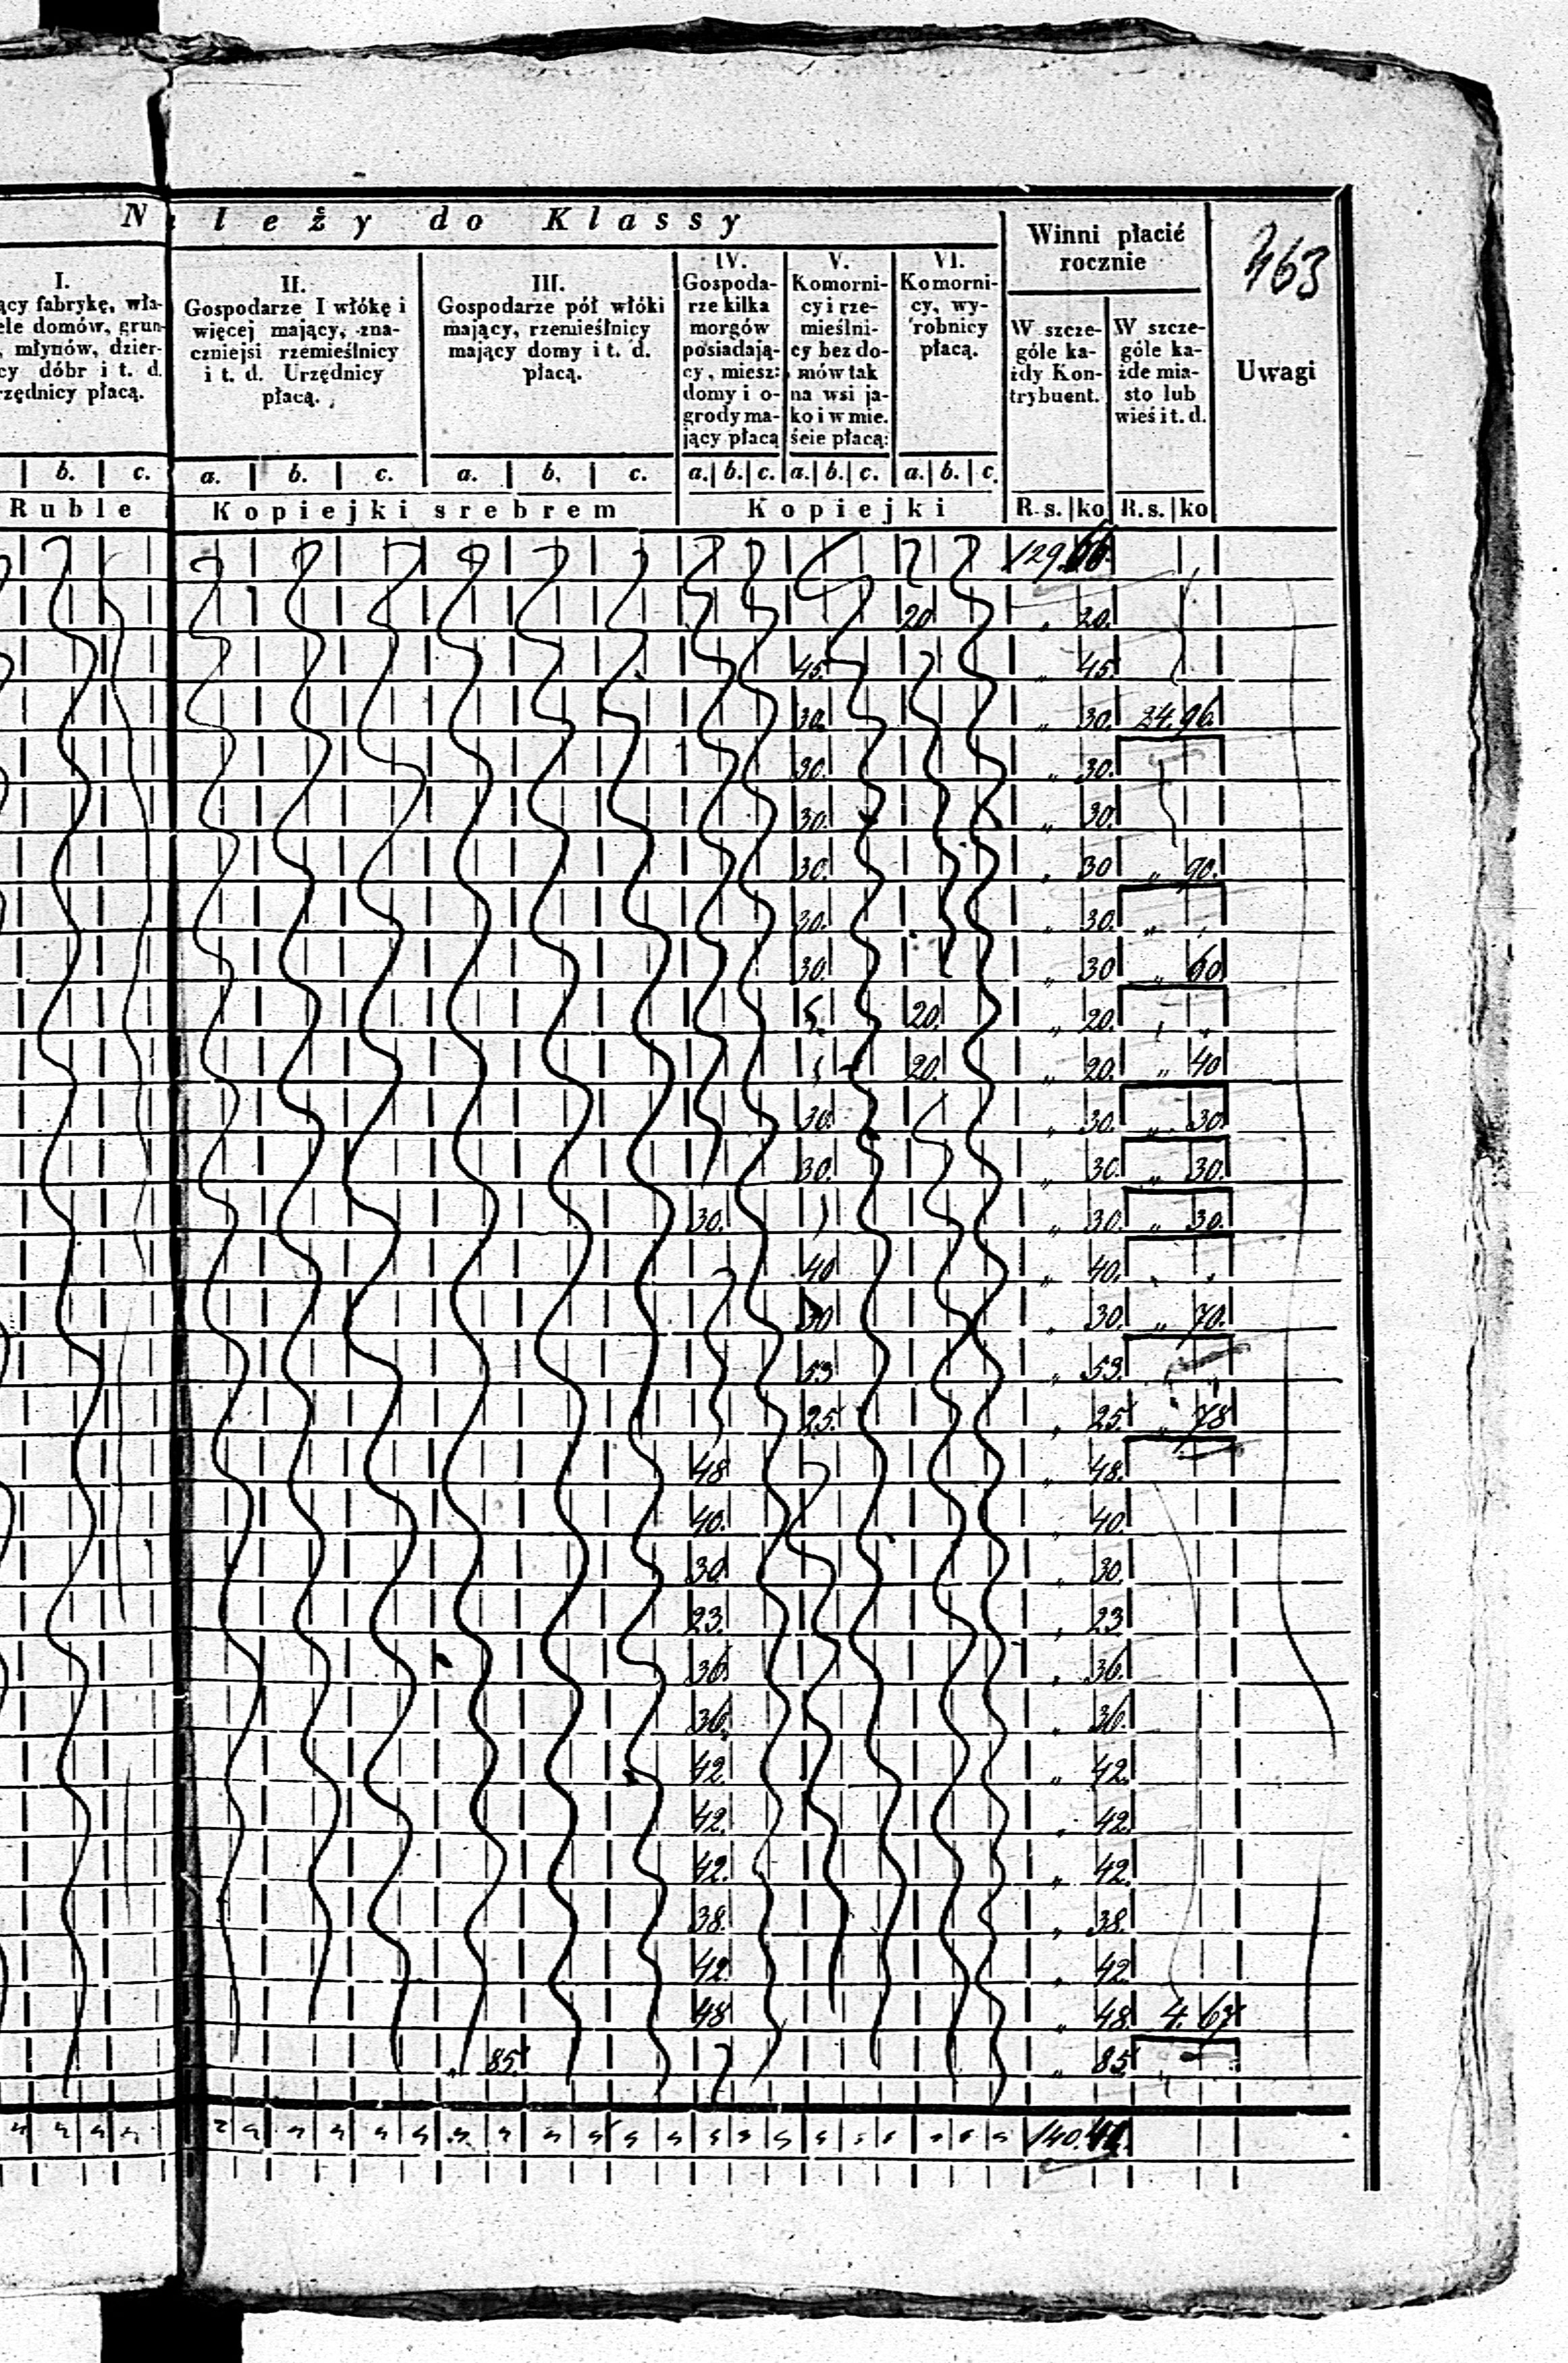 Należy do Klassy
Winni płacić rocznie
463
I.
ący fabrykę, wła-
ele domów, grun-
, młynów, dzier-
cy dóbr i t. d.
rzędnicy płacą.
II.
Gospodarze I włókę i
więcej mający, zna-
czniejsi rzemieślnicy
i t. d. Urzędnicy
płacą.
III.
Gospodarze pół włóki
mający, rzemieślnicy
mający domy i t. d.
płacą.
IV.
Gospoda-
rze kilka
morgów
posiadają-
cy, miesz:
domy i o-
grody ma-
jący płacą
V.
Komorni-
cy i rze-
mieślni-
cy bez do-
mów tak
na wsi ja-
ko i w mie.
ście płacą:
VI.
Komorni-
cy, wy-
robnicy
płacą.
W szcze-
góle ka-
żdy Kon-
trybuent.
W szcze-
góle ka-
żde mia-
sto lub
wieś i t. d.
Uwagi
b. c. a. b. c. a. b. c. a. b. c. a. b. c. a. b. c.
Ruble Kopiejki srebrem Kopiejki R. s. ko R. s. ko
129. 66.
20 „ 20.
45. „ 45.
30. „ 30. 24. 96.
30. „ 30.
30. „ 30.
30. „ 30 „ 90.
30. „ 30. „
30. „ 30 „ 60
20. „ 20.
20. „ 20. „ 40
30. „ 30. „ 30.
30. „ 30. „ 30.
30. „ 30. „ 30.
40 „ 40.
30 „ 30. „ 70.
53 „ 53.
25. „ 25. „ 78
48 „ 48.
40. „ 40.
30 „ 30.
23. „ 23
36 „ 36
36. „ 36
42 „ 42.
42. „ 42.
42. „ 42.
38. „ 38.
42 „ 42
48 „ 48 4. 67
„ 85. „ 85
140.